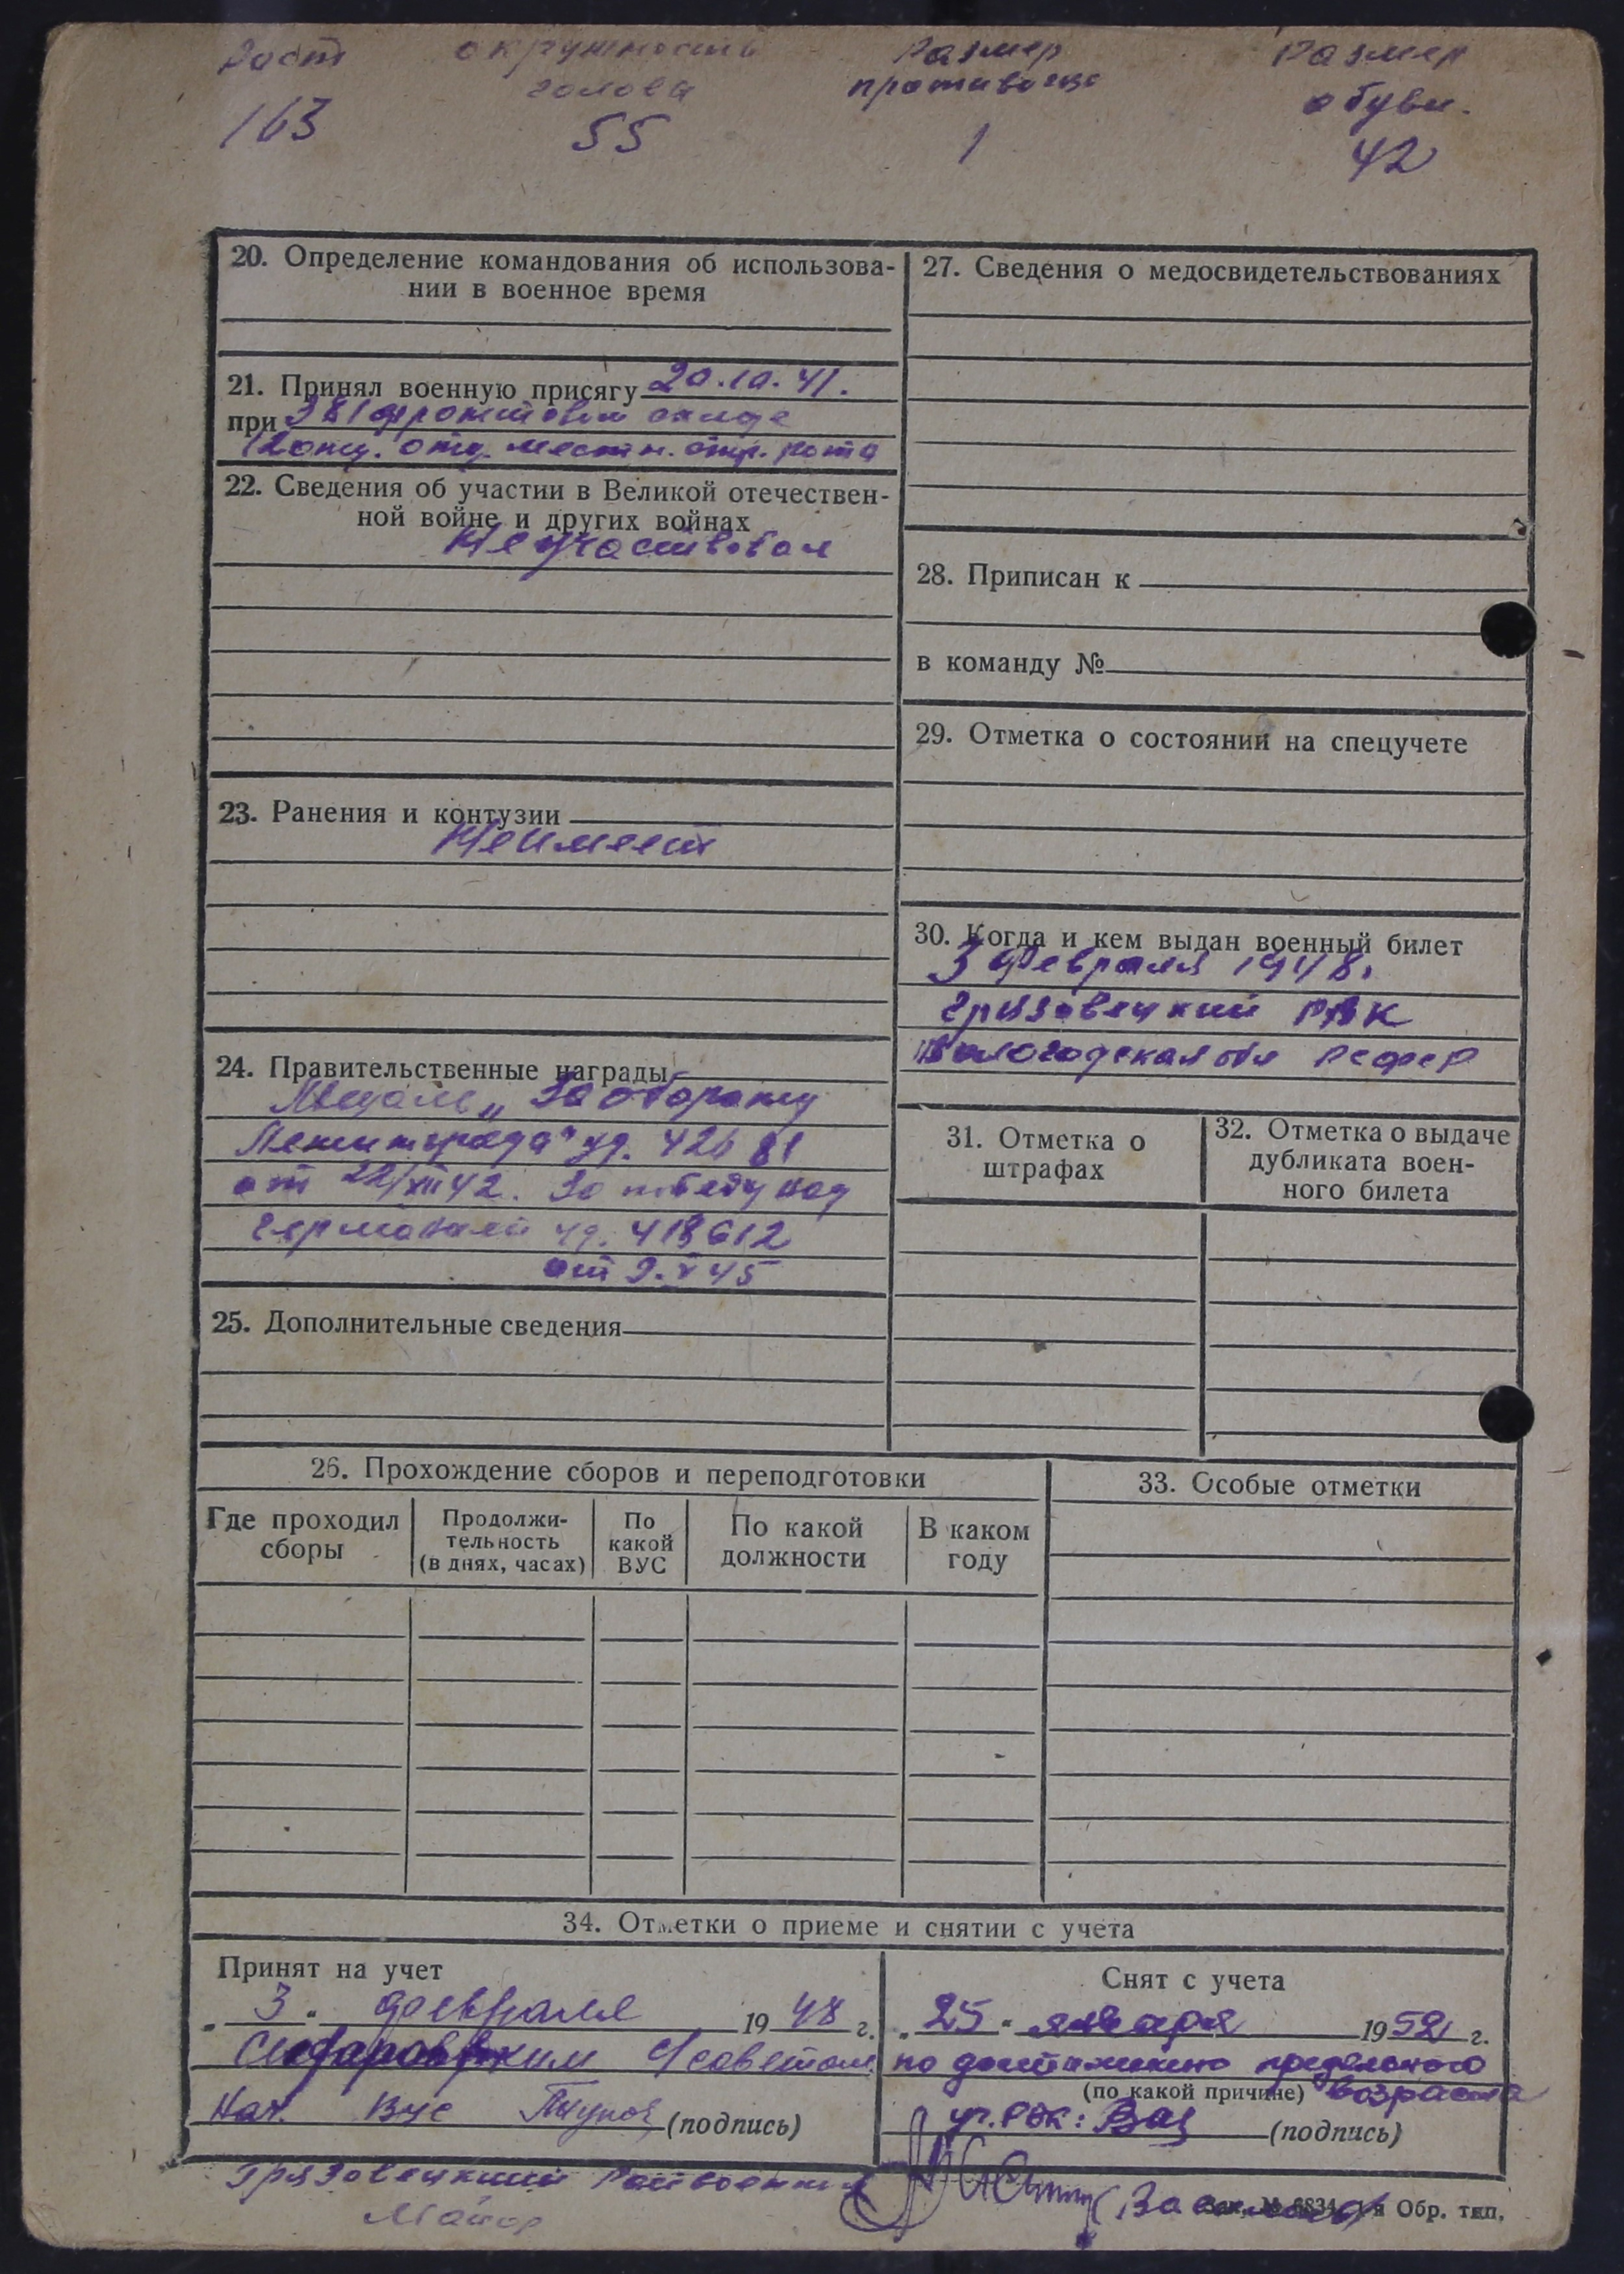 Рост окружность Размер Размер
головы противогаза обуви.
163 55 1 42
20. Определение командования об использова-
нии в военное время
21. Принял военную присягу 20.10.41.
при 381 фронтовом складе
отд. местн. стр. рота
22. Сведения об участии в Великой отечествен-
ной войне и других войнах
Не участвовал
23. Ранения и контузии
Не имеет
24. Правительственные награды
Медаль „За оборону
Ленинграда" уд. 42681
от 22/XII 42. За победу над
Германией уд. 418612
от 9.V 45
25. Дополнительные сведения
27. Сведения о медосвидетельствованиях
28. Приписан к
в команду №
29. Отметка о состоянии на спецучете
30. Когда и кем выдан военный билет
3 февраля 1948.
Грязовецкий РВК
Вологодская обл РСФСР
31. Отметка о
штрафах
32. Отметка о выдаче
дубликата воен-
ного билета
26. Прохождение сборов и переподготовки
Где проходил
сборы
Продолжи-
тельность
(в днях, часах)
По
какой
ВУС
По какой
должности
В каком
году
33. Особые отметки
34. Отметки о приеме и снятии с учета
Принят на учет
„3" февраля 1948 г.
С/советом
Нач. ВУС (подпись)
Грязовецкий Райвоенком
Майор
Снят с учета
„25" января 1952 г.
по достижению предельного
(по какой причине) возраста
(подпись)
Зак. № 6834 1-я Обр. тип.